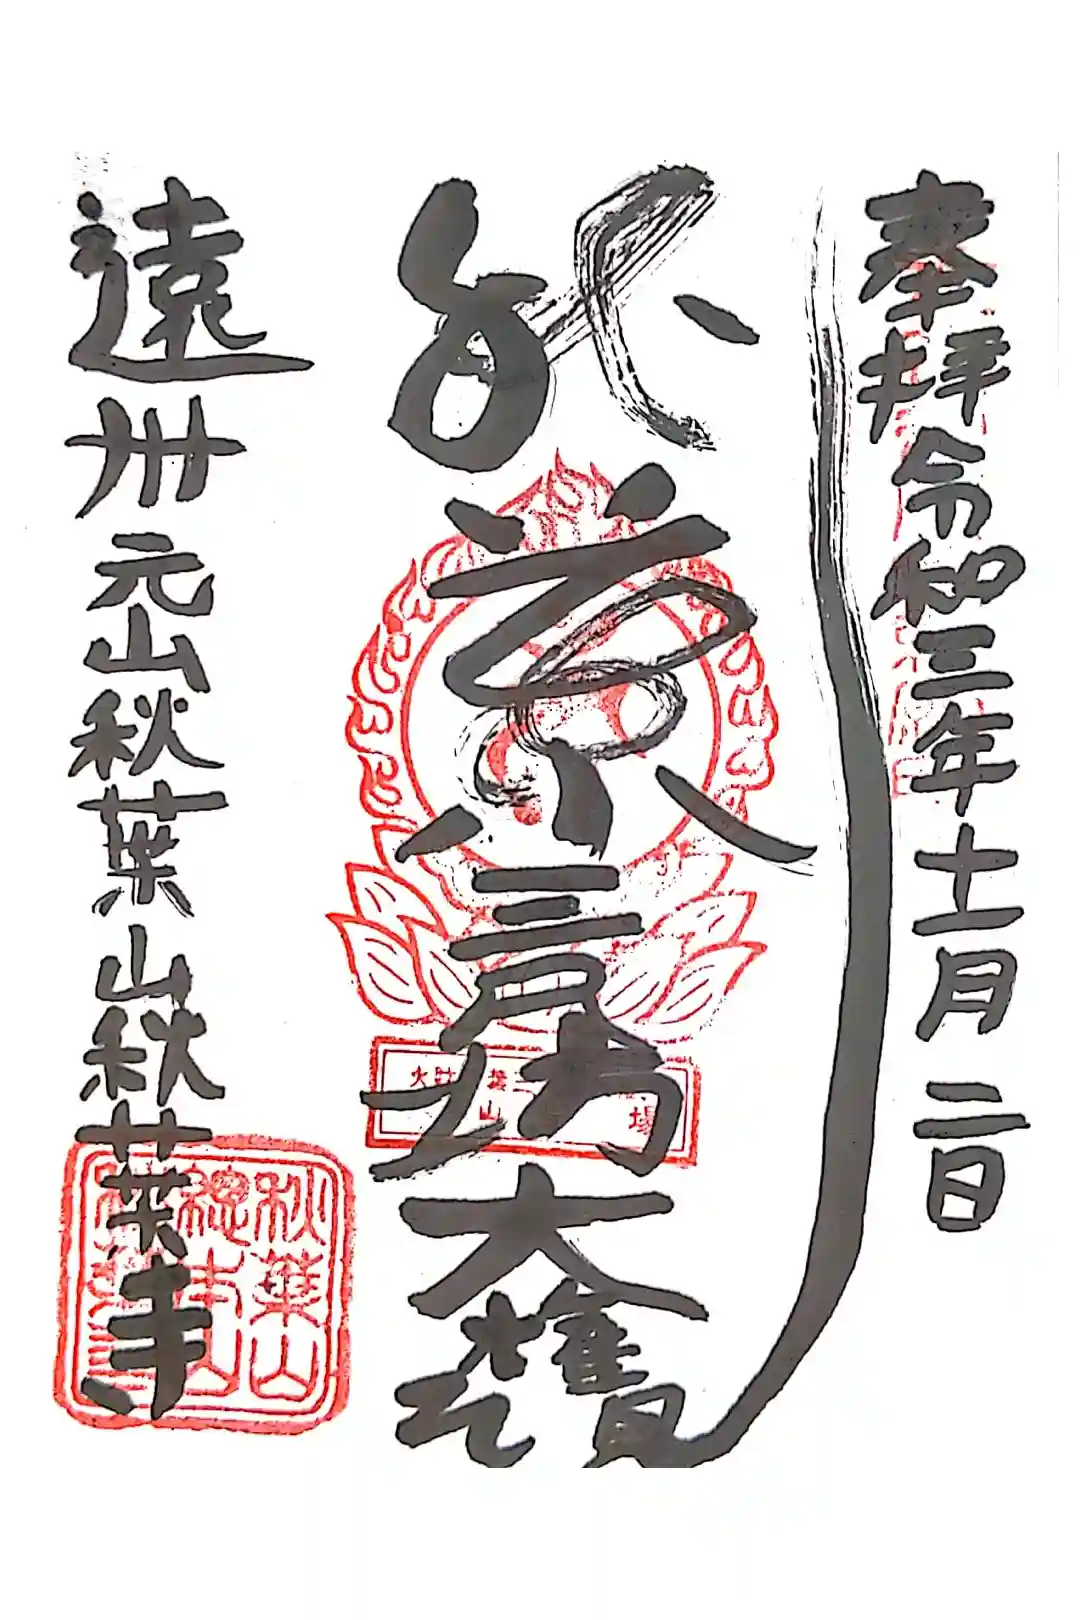 奉拝 令和三年十一月二日
秋葉三尺坊大権現
遠州 元山秋葉山秋葉寺
秋葉山
總本山
秋葉寺